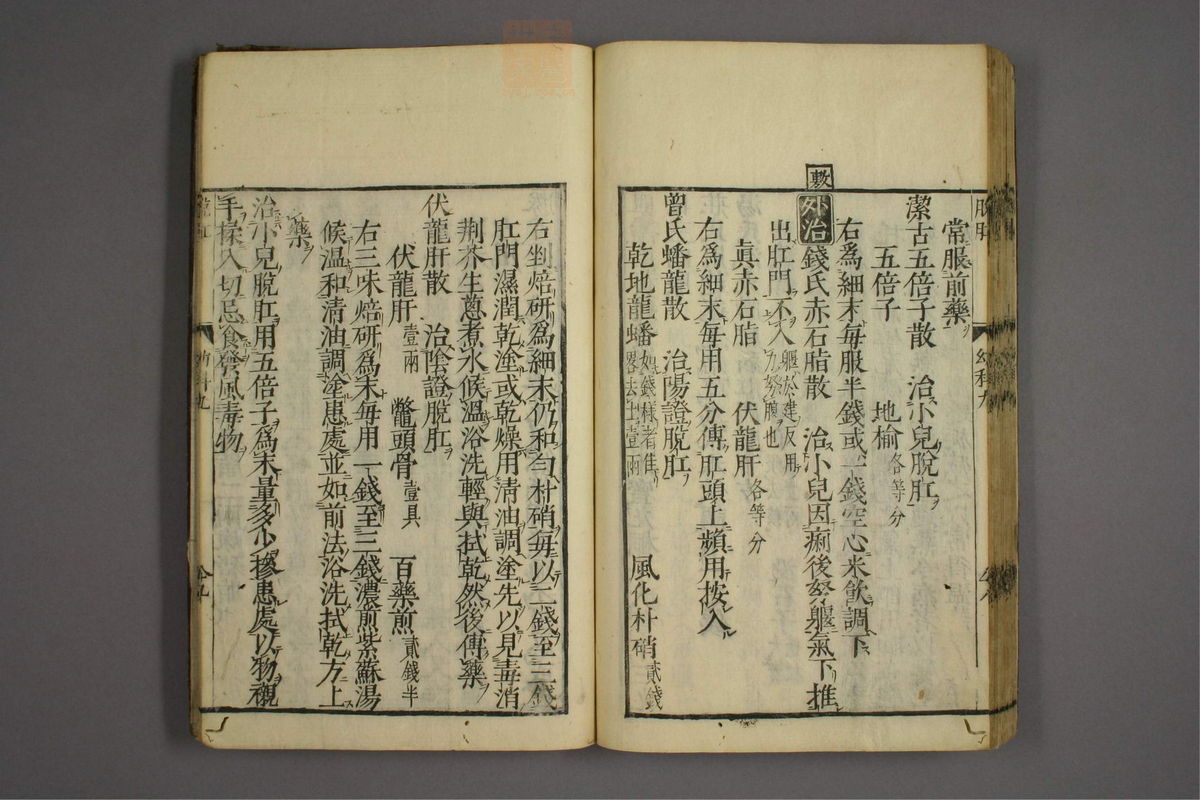 常服前藥
潔古五倍子散　治小兒脫肛
五倍子　地榆各等分
右爲細末每服半錢或一錢空心米飲調下
敷
外治
錢氏赤石脂散　治小兒因痢後努軀氣下推
出肛門不入軀於建反用力努腹也
眞赤石脂　伏龍肝各等分
右爲細末每用五分傅肛頭上頻用按入
曾氏蟠龍散　治陽證脫肛
乾地龍蟠如錢樣者佳畧去土壹兩　風化朴硝貳錢
幼科九
右剉焙研爲細末仍和勻朴硝每以二錢至三錢
肛門濕潤乾塗或乾燥用清油調塗先以見毒消
荆芥生蔥煮水候溫浴洗輕與拭乾然後傅藥
伏龍肝散　治陰證脫肛
伏龍肝壹兩　鼈頭骨壹具　百藥煎貳錢半
右三味焙研爲末每用一錢至三錢濃煎紫蘇湯
候溫和清油調塗患處並如前法浴洗拭乾方上
藥
治小兒脫肛用五倍子爲末量多少摻患處以物襯
手揉入切忌食發風毒物